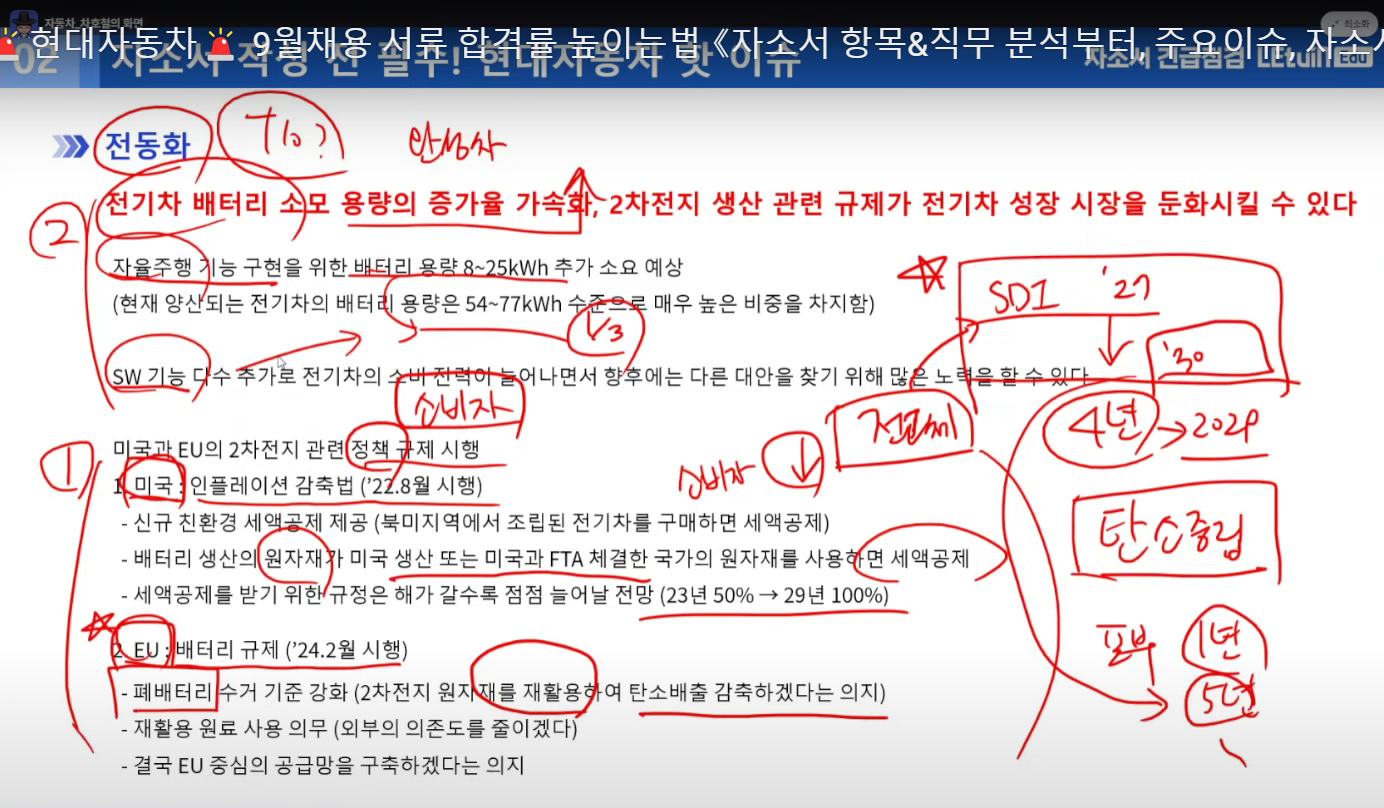 자동차_차호철의 화면
최소화
🚨 현대자동차 🚨 9월채용 서류 합격률 높이는법 《자소서 항목&직무 분석부터, 주요이슈, 자소서
02 자소서 작성 전 필수! 현대자동차 핫 이슈
자소서 긴급점검 LETUIN Edu
전동화
완성차
전기차 배터리 소모 용량의 증가율 가속화, 2차전지 생산 관련 규제가 전기차 성장 시장을 둔화시킬 수 있다
②
자율주행 기능 구현을 위한 배터리 용량 8~25kWh 추가 소요 예상
(현재 양산되는 전기차의 배터리 용량은 54~77kWh 수준으로 매우 높은 비중을 차지함)
1/3
SDI '27
'30
SW 기능 다수 추가로 전기차의 소비 전력이 늘어나면서 향후에는 다른 대안을 찾기 위해 많은 노력을 할 수 있다
소비자
전고체
4년 → 2029
미국과 EU의 2차전지 관련 정책 규제 시행
①
소비자 ↓
1. 미국 : 인플레이션 감축법 ('22.8월 시행)
- 신규 친환경 세액공제 제공 (북미지역에서 조립된 전기차를 구매하면 세액공제)
탄소중립
- 배터리 생산의 원자재가 미국 생산 또는 미국과 FTA 체결한 국가의 원자재를 사용하면 세액공제
- 세액공제를 받기 위한 규정은 해가 갈수록 점점 늘어날 전망 (23년 50% → 29년 100%)
포부 1년
5년
2. EU : 배터리 규제 ('24.2월 시행)
- 폐배터리 수거 기준 강화 (2차전지 원자재를 재활용하여 탄소배출 감축하겠다는 의지)
- 재활용 원료 사용 의무 (외부의 의존도를 줄이겠다)
- 결국 EU 중심의 공급망을 구축하겠다는 의지